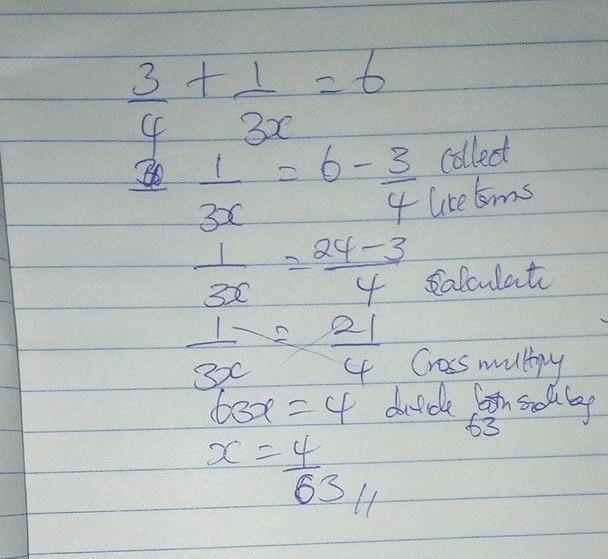 3/4 + 1/3x = 6
1/3x = 6 - 3/4 collect like terms
1/3x = 24-3/4 Calculate
1/3x = 21/4 Cross multiply
63x = 4 divide both side by 63
x = 4/63 //